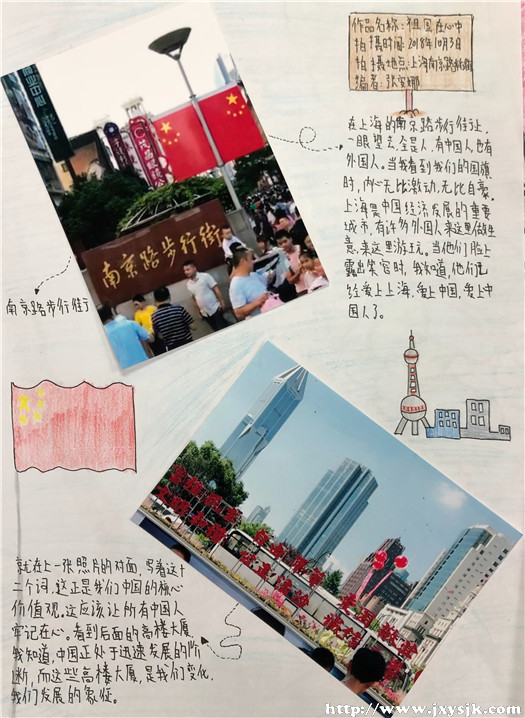 作品名称：祖国在心中
拍摄时间：2018年10月3日
拍摄地点：上海南京路步行街
编者：张安娜
在上海的南京路步行街上，
一眼望去，全是人，有中国人也有
外国人。当我看到我们的国旗
时，内心无比激动，无比自豪。
上海是中国经济发展的重要
城市，有许多外国人来这里做生
意，来这里游玩。当他们脸上
露出笑容时，我知道，他们已
经爱上上海，爱上中国，爱上中
国人了。
南京路步行街
南京路步行街
就在上一张照片的对面，写着这十
二个词，这正是我们中国的核心
价值观。这应该让所有中国人
牢记在心。看到后面的高楼大厦，
我知道，中国正处于迅速发展的阶
断，而这些高楼大厦，是我们变化，
我们发展的象征。
http://www.jxysjk.com